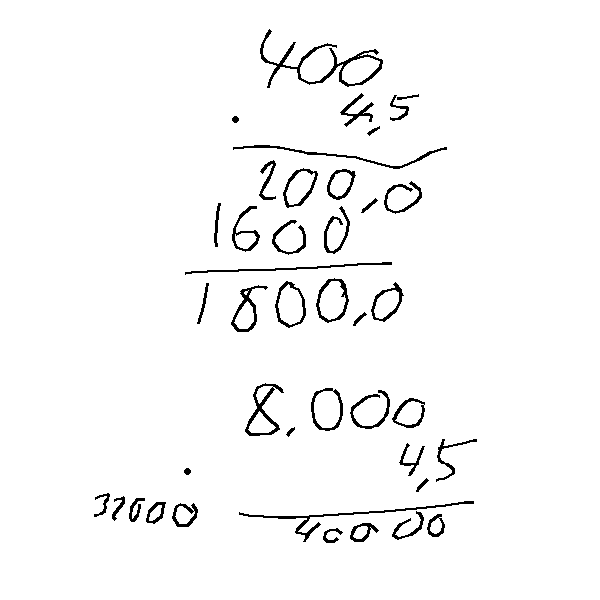 400
. 4,5
200,0
1600
1800,0
8.000
. 4,5
32000 40000